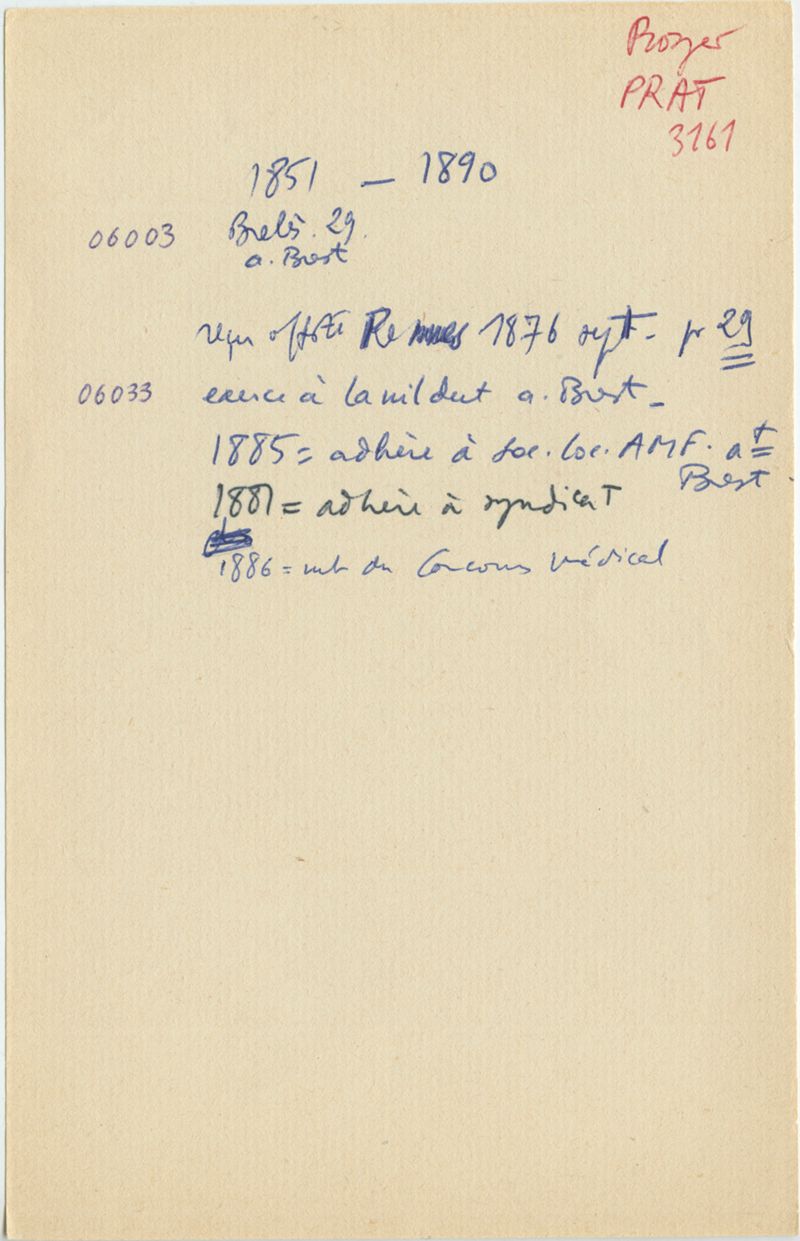 PRAT
3161
1851 — 1890
06003 Brelès. 29.
a. Brest
reçu off. sté Rennes 1876 sept. pr 29
06033 exerce à Lanildut a. Brest_
1885 = adhère à soc. loc. AMF. at
Brest
1881 = adhère à syndicat
1886 = mb du Concours Médical